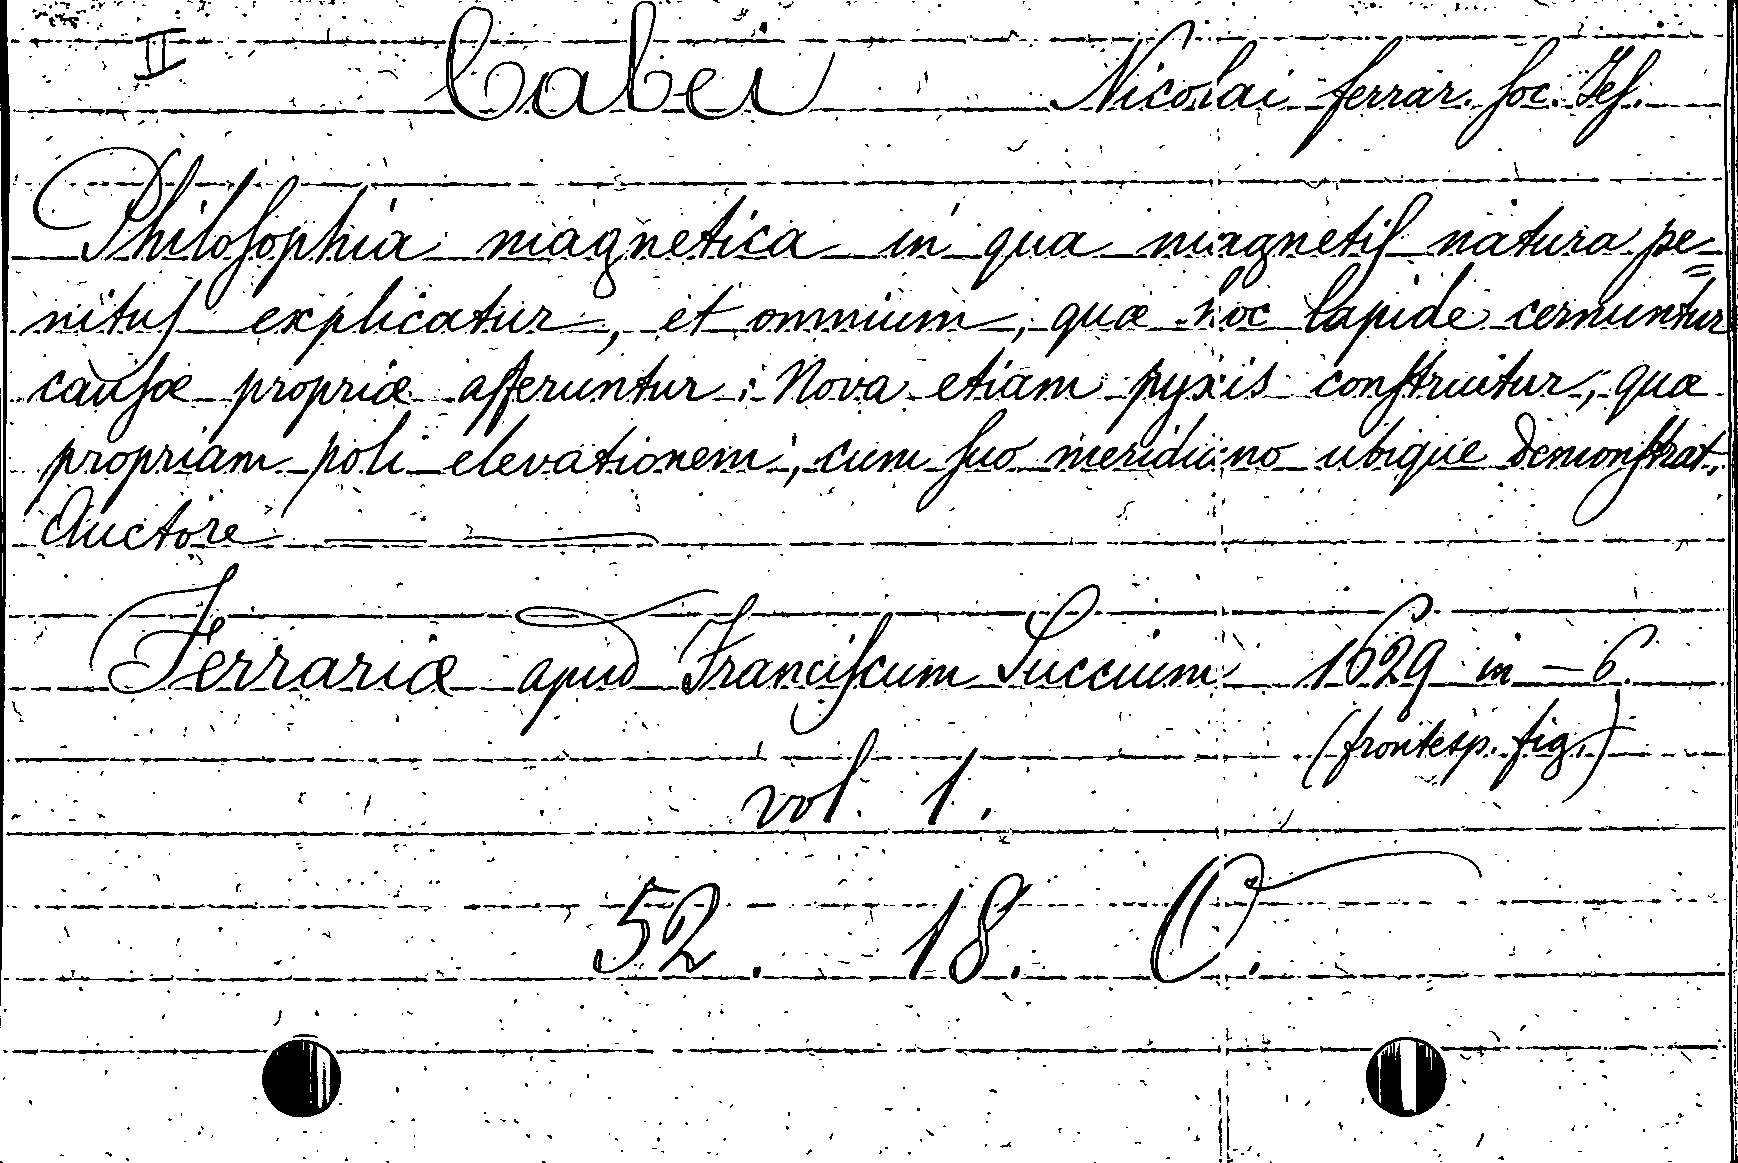 II Cabei Nicolai ferrar. soc. Jes.
Philosophia magnetica in qua magnetis natura pe=
nitus explicatur, et omnium, quæ hoc lapide cernuntur
causæ propriæ afferuntur: Nova etiam pyxis construitur, quæ
propriam poli elevationem, cum suo meridiano ubique demonstrat.
Auctore
Ferrariæ apud Franciscum Succium 1629 in-6.
(frontesp. fig.)
vol. 1.
52. 18. O.